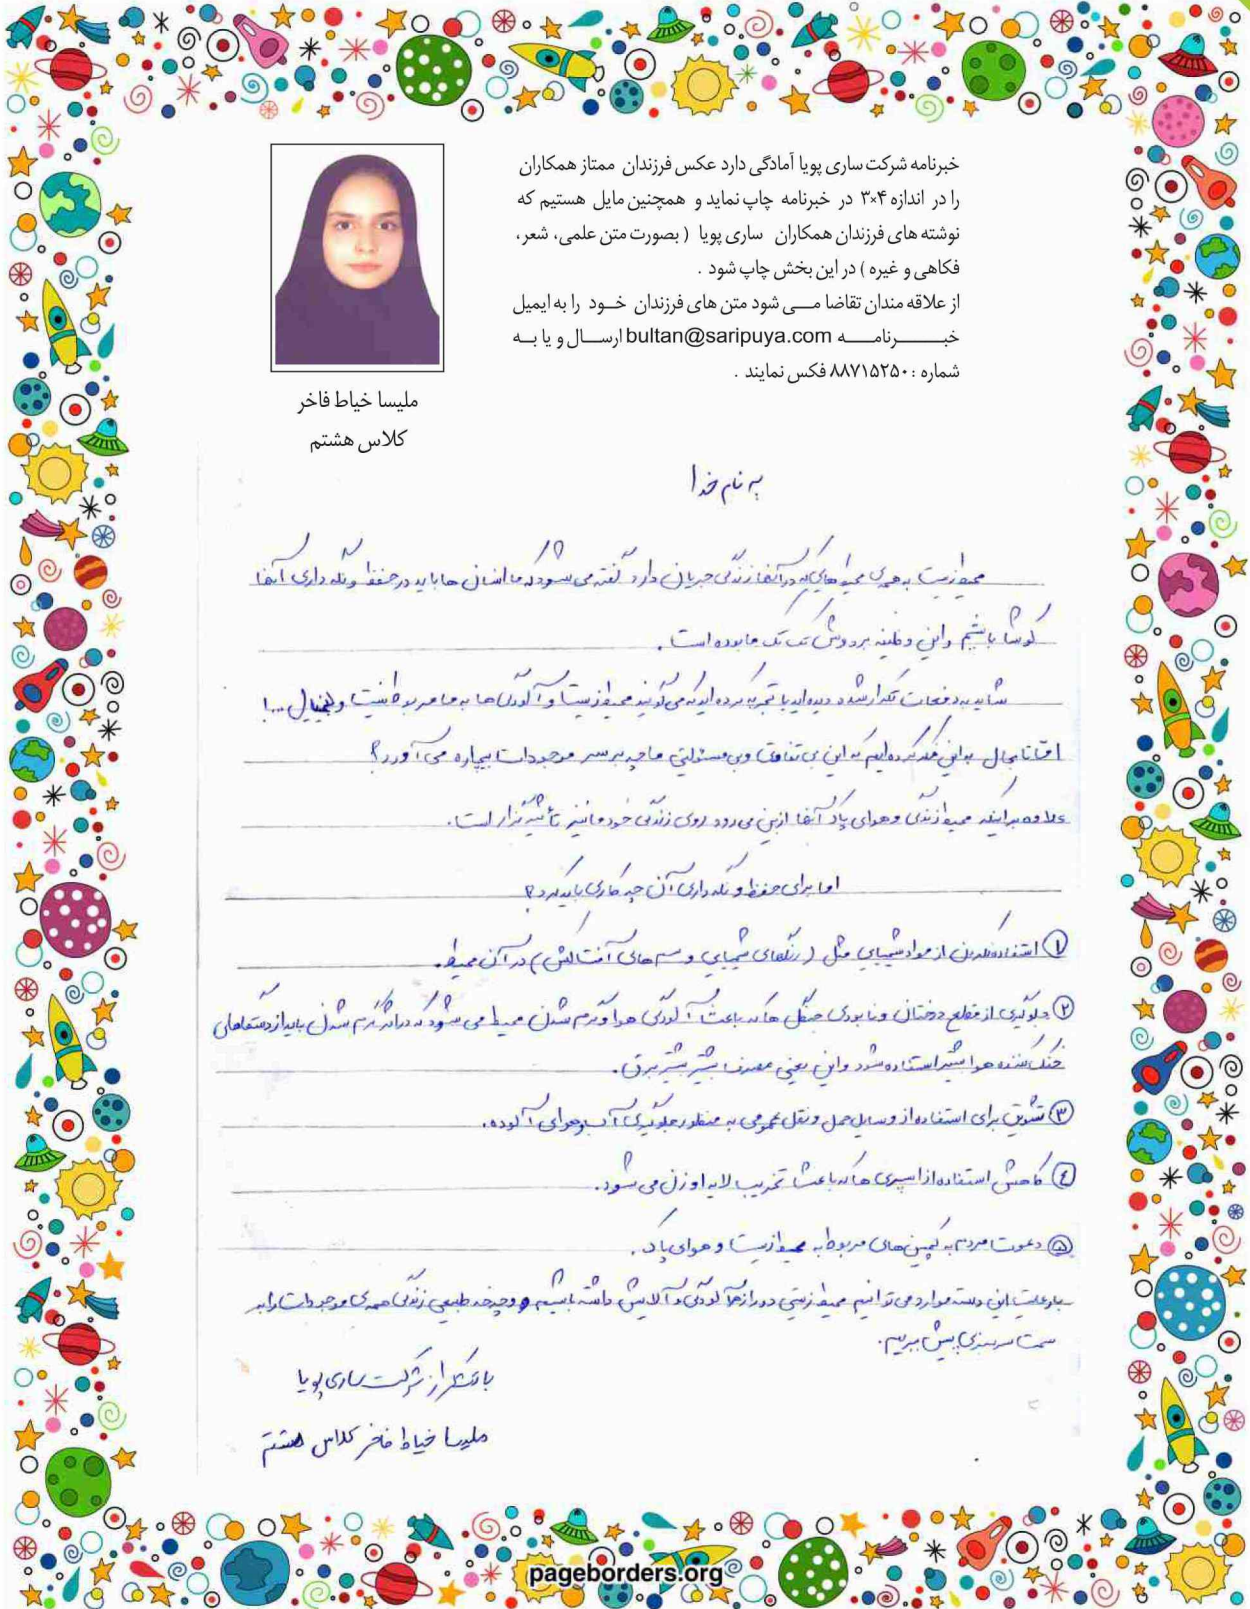 خبرنامه شرکت ساری پویا آمادگی دارد عکس فرزندان ممتاز همکاران
را در اندازه ۴×۳ در خبرنامه چاپ نماید و همچنین مایل هستیم که
نوشته های فرزندان همکاران ساری پویا ( بصورت متن علمی، شعر،
فکاهی و غیره ) در این بخش چاپ شود .
از علاقه مندان تقاضا مــی شود متن های فرزندان خــود را به ایمیل
خبــــــرنامـــــه bultan@saripuya.com ارســال و یا بــه
شماره : ۸۸۷۱۵۲۵۰ فکس نمایند .
ملیسا خیاط فاخر
کلاس هشتم
به نام خدا
محیط زیست به همه ی محیط هایی که در آنها زندگی جریان دارد گفته می شود که ما انسان ها باید در حفظ و نگه داری آنها
کوشا باشیم و این وظیفه بر دوش تک تک ما بوده است .
شاید به دفعات تکرار شده دیده اید یا تجربه کرده اید که می گویند محیط زیست و آلودگی ها به ما مربوط نیست و بیخیال ...!
اما تا بحال به این فکر کرده ایم که این بی تفاوتی و بی مسئولیتی ما چه بر سر موجودات بیچاره می آورد؟
علاوه بر اینکه محیط زندگی و هوای پاک آنها از بین می رود روی زندگی خود ما نیز تأثیر گزار است .
اما برای حفظ و نگه داری آن چه کاری باید کرد؟
۱ استفاده نکردن از مواد شیمیایی مثل ( رنگهای شیمیایی و سم های آفت کش ) در آن محیط .
۲ جلوگیری از قطع درختان و نابودی جنگل ها که باعث آلودگی هوا و گرم شدن محیط می شود که در اثر گرم شدن باید از دستگاهای
خنک کننده هوا بیشتر استفاده شود و این یعنی مصرف بیشتر برق .
۳ تشویق برای استفاده از وسایل حمل و نقل عمومی به منظور جلوگیری آب و هوای آلوده .
٤ کاهش استفاده از اسپری ها که باعث تخریب لایه اوزن می شود .
۵ دعوت مردم به کمپین های مربوط به محیط زیست و هوای پاک .
با رعایت این دسته موارد می توانیم محیط زیستی دور از آلودگی و آلایش داشته باشیم و چرخه طبیعی زندگی همه ی موجودات را به
سمت سرسبزی پیش ببریم .
با تشکر از شرکت ساری پویا
ملیسا خیاط فاخر کلاس هشتم
pageborders.org